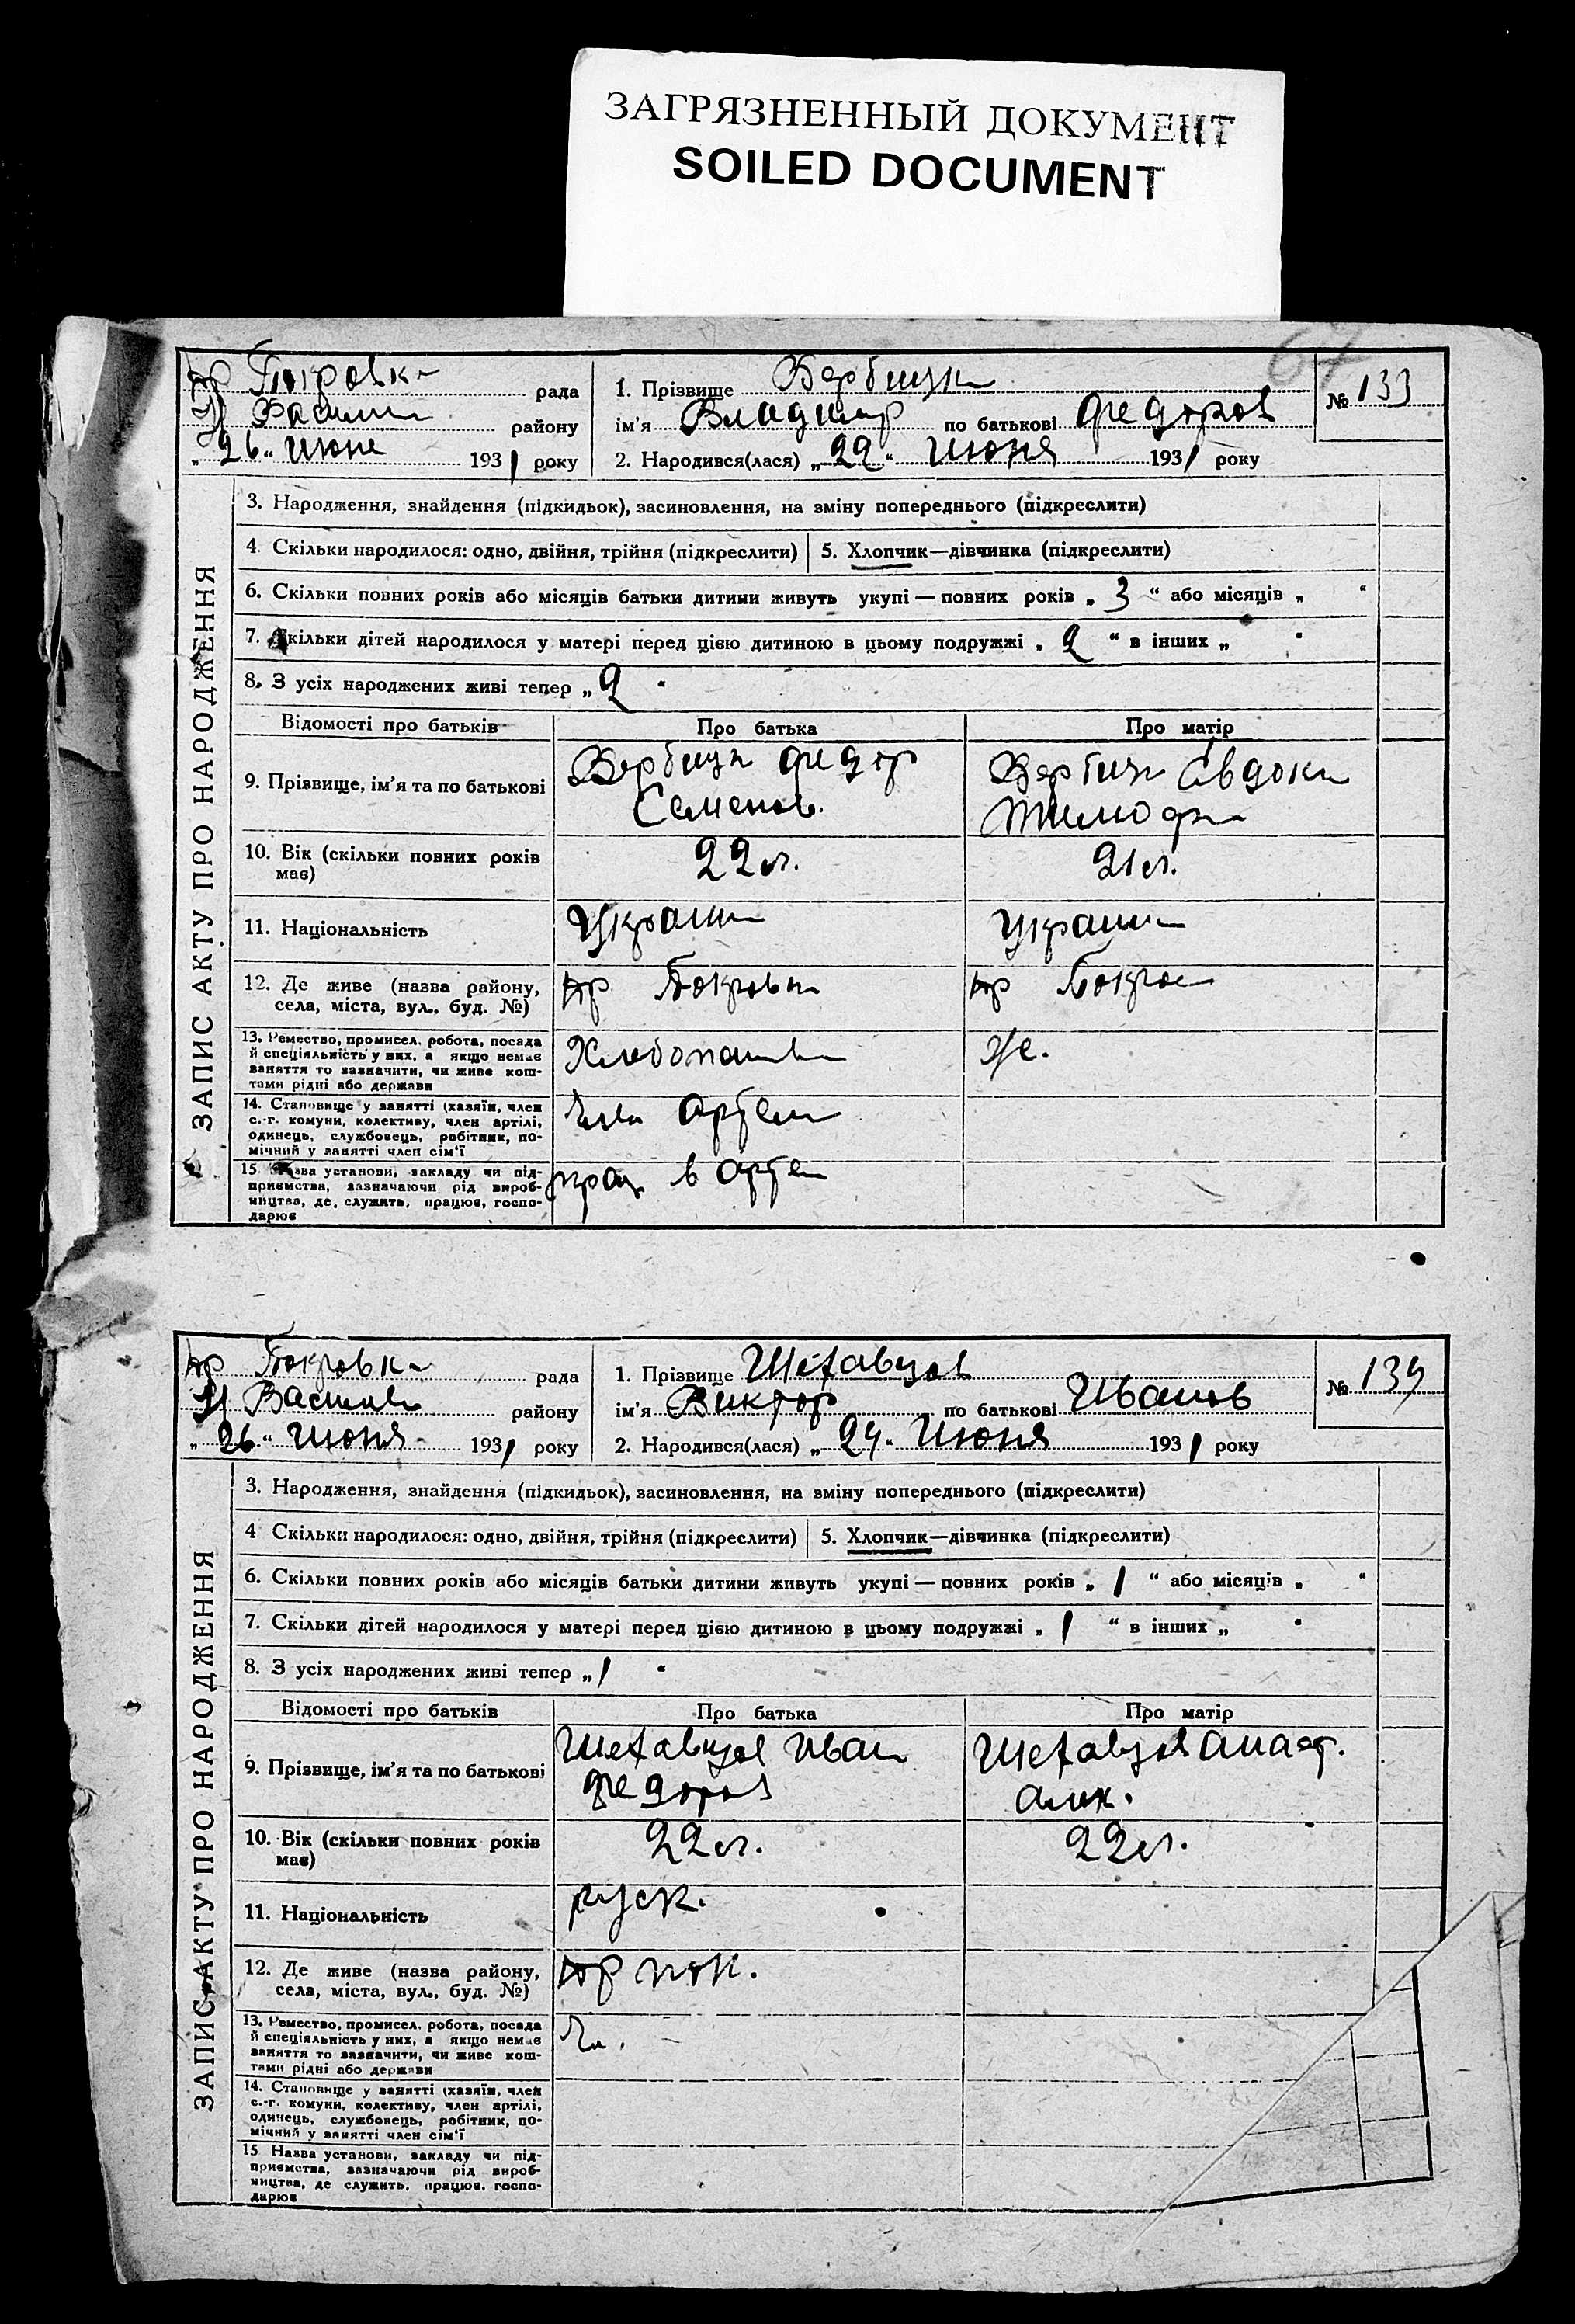 ЗАГРЯЗНЕННЫЙ ДОКУМЕНТ
SOILED DOCUMENT
67
Покровк рада
Васили району
„26“ Июня 1931 року
1. Прізвище Вербицк
ім'я Владимир по батькові Федоров
2. Народився(лася) „22“ Июня 1931 року
№ 133
ЗАПИС АКТУ ПРО НАРОДЖЕННЯ
3. Народження, знайдення (підкидьок), засиновлення, на зміну попереднього (підкреслити)
4. Скільки народилося: одно, двійня, трійня (підкреслити) 5. Хлопчик—дівчинка (підкреслити)
6. Скільки повних років або місяців батьки дитини живуть укупі — повних років „3“ або місяців „ “
7. Скільки дітей народилося у матері перед цією дитиною в цьому подружжі „2“ в інших „ “
8. З усіх народжених живі тепер „2“
Відомості про батьків Про батька Про матір
9. Прізвище, ім'я та по батькові
Вербицк Федор
Семенов.
Вербицк Евдоки
Тимоф
10. Вік (скільки повних років має)
22 л.
21 л.
11. Національність
Украин
Украин
12. Де живе (назва району,
села, міста, вул., буд. №)
кр Покровк
кр Покров
13. Ремество, промисел, робота, посада
й спеціяльність у них, а якщо немає
заняття то зазначити, чи живе кош-
тами рідні або держави
Хлебопаш
14. Становище у занятті (хазяїн, член
с.-г. комуни, колективу, член артілі,
одинець, службовець, робітник, по-
мічний у занятті член сім'ї
Член Артели
15 Назва установи, закладу чи під-
приємства, зазначаючи рід вироб-
ництва, де служить, працює, госпо-
дарює
прац в арте
кр Покровк рада
Васильев району
„26“ Июня 1931 року
1. Прізвище
ім'я Виктор по батькові Иванов
2. Народився(лася) „24“ Июня 1931 року
№ 134
ЗАПИС АКТУ ПРО НАРОДЖЕННЯ
3. Народження, знайдення (підкидьок), засиновлення, на зміну попереднього (підкреслити)
4 Скільки народилося: одно, двійня, трійня (підкреслити) 5. Хлопчик—дівчинка (підкреслити)
6. Скільки повних років або місяців батьки дитини живуть укупі — повних років „1“ або місяців „ “
7. Скільки дітей народилося у матері перед цією дитиною в цьому подружжі „1“ в інших „ “
8. З усіх народжених живі тепер „1“
Відомості про батьків Про батька Про матір
9. Прізвище, ім'я та по батькові
Иван
Федоров
Анаст.
Алек.
10. Вік (скільки повних років
має)
22 л.
22 л.
11. Національність
руск.
12. Де живе (назва району,
села, міста, вул., буд. №)
кр пок.
13. Ремество, промисел, робота, посада
й спеціяльність у них, а якщо немає
заняття то зазначити, чи живе кош-
тами рідні або держави
14. Становище у занятті (хазяїн, член
с.-г. комуни, колективу, член артілі,
одинець, службовець, робітник, по-
мічний у занятті член сім'ї
15 Назва установи, закладу чи під-
приємства, зазначаючи рід вироб-
ництва, де служить, працює, госпо-
дарює